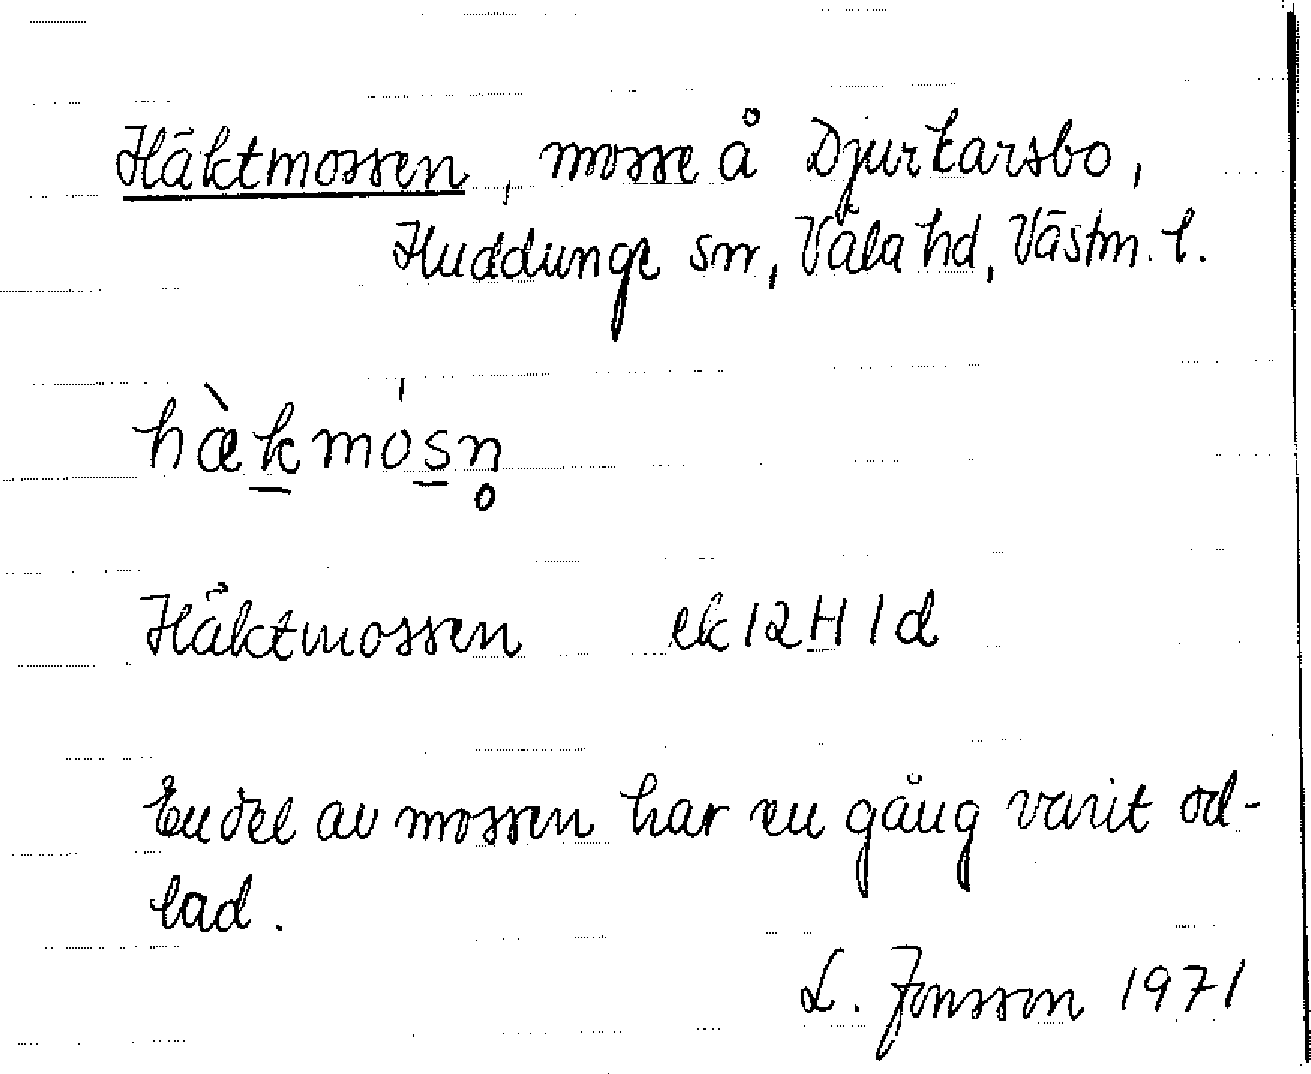 Häktmossen, mosse å Djurkarsbo,
Huddunge sn, Våla hd, Västm. l.
hæ̀k̠mós̠n̥
Häktmossen ek 12H 1d
En del av mossen har en gång varit od-
lad.
L. Jonsson 1971